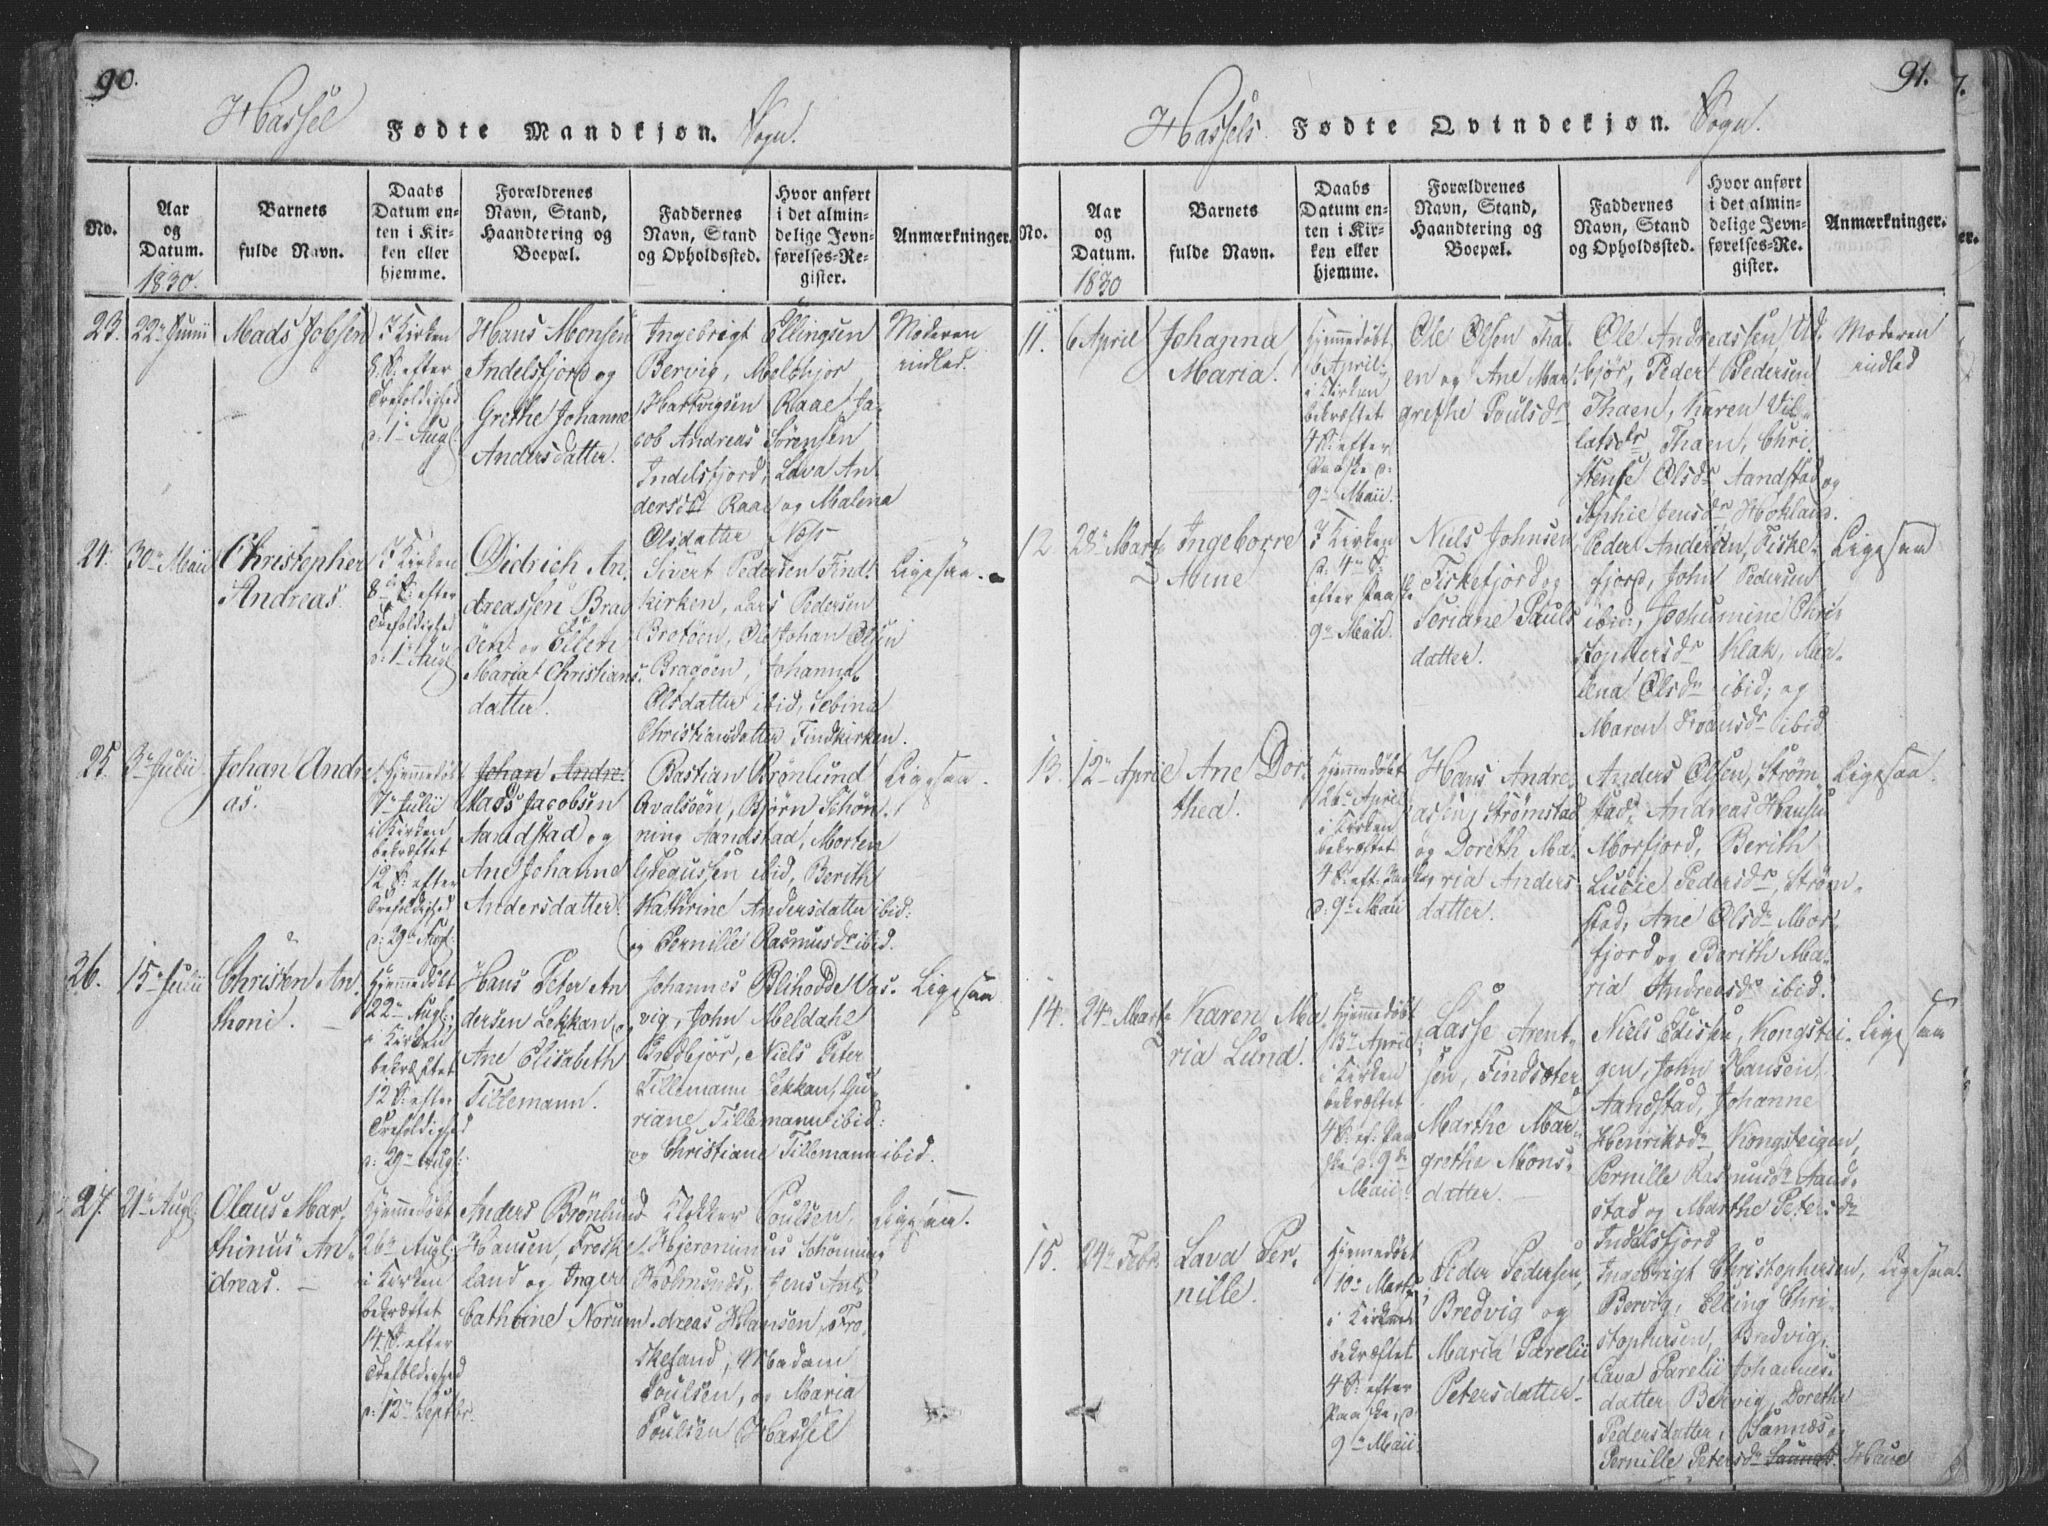 90.
Hassel Fødte Mandkjøn. Sogn.
No.
Aar og Datum.
Barnets fulde Navn.
Daabs Datum enten i Kirken eller hjemme.
Forældrenes Navn, Stand, Haandtering og Boepæl.
Faddernes Navn, Stand og Opholdssted.
Hvor anført i det almindelige Jevnførelses-Register.
Anmærkninger.
1830.
23. 22de Junii
Mads Jobsen
I Kirken
8 S: efter
Trefoldighed
d: 1te Augl:
Hans Monsen
Indelsfjord og
Grethe Johanne
Andersdatter.
Ingebrigt Ellingsen
Bervig, Melchjor
Hartvigsen Raae Ja-
cob Andreas Sørensen
Indelsfjord, Lava An-
dersdt Raae og Malena
Olsdatter Næss
Moderen
indled.
24. 30te Maii
Christopher
Andreas.
I Kirken
8de S: efter
Trefoldighed
d: 1te Augl
Didrich An-
dreassen Brag-
öen og Ellen
Maria Christians-
datter.
Sivert Pedersen Find-
kirken, Lars Pedersen
Brotöen, Ole Johan Olsen
Bragöen, Johanna
Olsdatter ibid, Sebina
Christiansdatter Findkirken.
Ligesaa.
25. 3de Julii
Johan Andre-
as.
Hjemmedöbt
7de Julii
i Kirken
bekræftet
12 S: efter
Trefoldighed
d: 29de Augl:
Johan Andre-
Mads Jacobsen
Aandstad og
Ane Johanne
Andersdatter.
Bastian Brönlund
Qvalsöen, Björn Schön-
ning Aandstad, Morten
Gregussen ibid, Berith
Kathrine Andersdatter ibid:
og Pernille Rasmusdr ibid.
Ligesaa.
26. 15de Julii
Christen An-
thoni.
Hjemmedöbt
22de Augl:
i Kirken
bekræftet
12 S: efter
Trefoldighed
d: 29de Augl:
Hans Peter An-
dersen Lekkan, og
Ane Elisabeth
Tillemann.
Johannes Blihodde Vas-
vig, John Meldahl
Indbjör, Niels Peter
Tillemann Lekkan, Gu-
riane Tillemann ibid:
og Christiane Tillemann ibid.
Ligesaa
27. 21de Augl:
Olaus Mar-
thinus An-
dreas.
Hjemmedöbt
26de Augl:
i Kirken
bekræftet
14 S: efter
Trefoldighed
d: 12te Septbr.
Anders Brönlund
Hansen, Froske-
land og Inger
Cathrine Norum
Klokker Poulsen,
Hjeronimus Schönning
Holmsnæs, Jens An-
dreas Hansen, Fro-
skeland, Madam
Poulsen, og Maria
Poulsen Hassel
Ligesaa.
91.
Hassels Fødte Qvindekjøn. Sogn.
No.
Aar og Datum.
Barnets fulde Navn.
Daabs Datum enten i Kirken eller hjemme.
Forældrenes Navn, Stand, Haandtering og Boepæl.
Faddernes Navn, Stand og Opholdssted.
Hvor anført i det almindelige Jevnførelses-Register.
Anmærkninger.
1830
11. 6 April
Johanna
Maria.
Hjemmedöbt
6 April:
i Kirken
bekræftet
4 S: efter
Paaske d:
9de Maii.
Ole Olsen Tha-
en og Ane Mar-
grethe Poulsdr
Ole Andreassen Ud-
björ, Peder Pedersen
Thaen, Karen Vil-
latsdr Thaen, Chri-
stense Olsdr Aandstad og
Sophie Jensdr, Hokland.
Moderen
indled
12. 28de Marts
Ingeborre
Anne
I Kirken
d: 4de S:
efter Paaske
9de Maii.
Niels Johnsen,
Fiskefjord og
Seriane Pauls
datter.
Peder Andersen, Fiske-
fjord, John Pedersen
ibid, Jochumine Chri-
stophersdr Klak, Ma-
lena Olsdr ibid; og
Maren Hansdr ibid
Ligesaa
13. 12te April
Ane Dor-
thea.
Hjemmedöbt
26de April
i Kirken
bekræftet
4 S: eft. Paaske
d: 9de Maii
Hans Andre-
asen, Strömstad
og Doreth Ma-
ria Anders-
datter.
Anders Olsen, Ström-
stad, Andreas Hansen
Morfjord, Berith
Lucie Pedersdr, Ström-
stad, Ane Olsdr Mor-
fjord og Berith Ma-
ria Andreasdr ibid.
Ligesaa.
14. 24de Marts
Karen Ma-
ria Lund.
Hjemmedöbt
13de April
i Kirken
bekræftet
4 S: ef. Paa-
ske d: 9de
Maii
Lasse Arent-
sen, Findsæter
Marthe Mar-
grethe Mons-
datter.
Niels Edisen, Kongstei-
gen, John Hansen
Aandstad, Johanne
Henriksdr Kongsteigen,
Pernille Rasmusdr Aand-
stad og Marthe Petersdr
Indalsfjord
Ligesaa
15. 24de Febr.
Lava Per-
nille.
Hjemmedöbt
10de Marts
i Kirken
bekræftet
4 S: efter
Paaske, d:
9de Maii
Peder Pedersen,
Bredvig og
Maria Parelii
Petersdatter.
Ingebrigt Christophersen,
Bervig, Elling Chri-
stophersen, Bredvig,
Lava Parelii Johannes-
datter Bervig, Dorethe
Pedersdatter, Sannæs og
Pernille Petersdr Haue
Ligesaa.